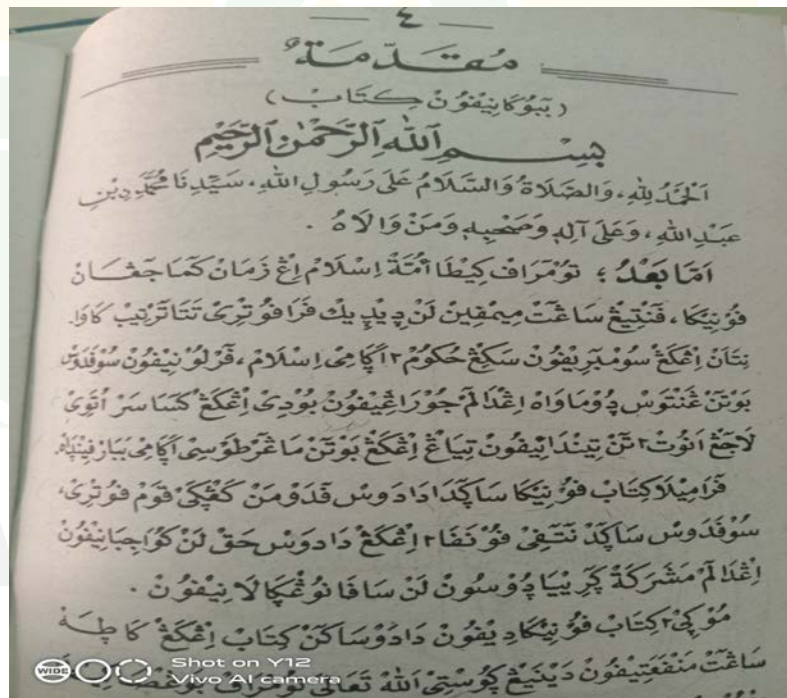 ٤
مُقَدِّمَةٌ
(بُبُوكَانِيْفُوْنْ كِتَابْ)
بِسْمِ اللهِ الرَّحْمٰنِ الرَّحِيْمِ
اَلْحَمْدُ لِلّٰهِ، وَالصَّلَاةُ وَالسَّلَامُ عَلَى رَسُولِ اللهِ، سَيِّدِنَا مُحَمَّدِ بْنِ
عَبْدِ اللهِ، وَعَلَى آلِهِ وَصَحْبِهِ وَمَنْ وَالَاهُ .
اَمَّا بَعْدُ ؛ تُوْمَرَافْ كِيْطَا أُمَّةْ اِسْلَامْ اِڠْ زَمَانْ كَمَاجَڠَانْ
فُوْنِيْكَا، فَنْتِيْڠْ سَاڠَتْ مِيْمْفِيْنْ لَنْ دِيْدِيْكْ فَرَا فُوْتْرِيْ تَتَا تَرْتِيْبْ كَاوَا-
نِتَانْ اِڠْكَڠْ سُوْمْبَرِيْفُوْنْ سَكِڠْ حُكُوْم٢ اَكَامِيْ اِسْلَامْ، فَرْلُوْنِيْفُوْنْ سُوْفَدَوْسْ
بَوْتَنْ ڠَنْتَوْسْ دُوْمَاوَاهْ اِڠْدَالَمْ جُوْرَاڠِيْفُوْنْ بُوْدِيْ اِڠْكَڠْ كَسَاسَرْ اُتَوِيْ
لَاجَڠْ اَنُوْت٢ تَنْ تِيْنْدَاكِيْفُوْنْ تِيَاڠْ اِڠْكَڠْ بَوْتَنْ مَاڠَرْطَوْسِيْ اَكَامِيْ
فَرَامِيْلَا كِتَابْ فُوْنِيْكَا سَاكَدَا دَادَوْسْ فَدَوْمَنْ كَڠْڮَيْ قَوْمْ فُوْتْرِيْ،
سُوْفَدَوْسْ سَاكَدْ نَتَفِيْ فُوْنَفَا٢ اِڠْكَڠْ دَادَوْسْ حَقْ لَنْ كَوَاجِبَانِيْفُوْنْ
اِڠْدَالَمْ مَشَرَكَةْ كَرِيْيَا دُوْسُوْنْ لَنْ سَافَانُوْڠْكَالَانِيْفُوْنْ .
مُوْكِي٢ كِتَابْ فُوْنِيْكَا دِيْفُوْنْ دَادَوْسَاكَنْ كِتَابْ اِڠْكَڠْ كَاطِهْ
سَاڠَتْ مَنْفَعَتِيْفُوْنْ دَيْنِيْڠْ كُوْسْتِيْ اَللهْ تَعَالٰى تُوْمَرَافْ
WIDE
Shot on Y12
Vivo AI camera